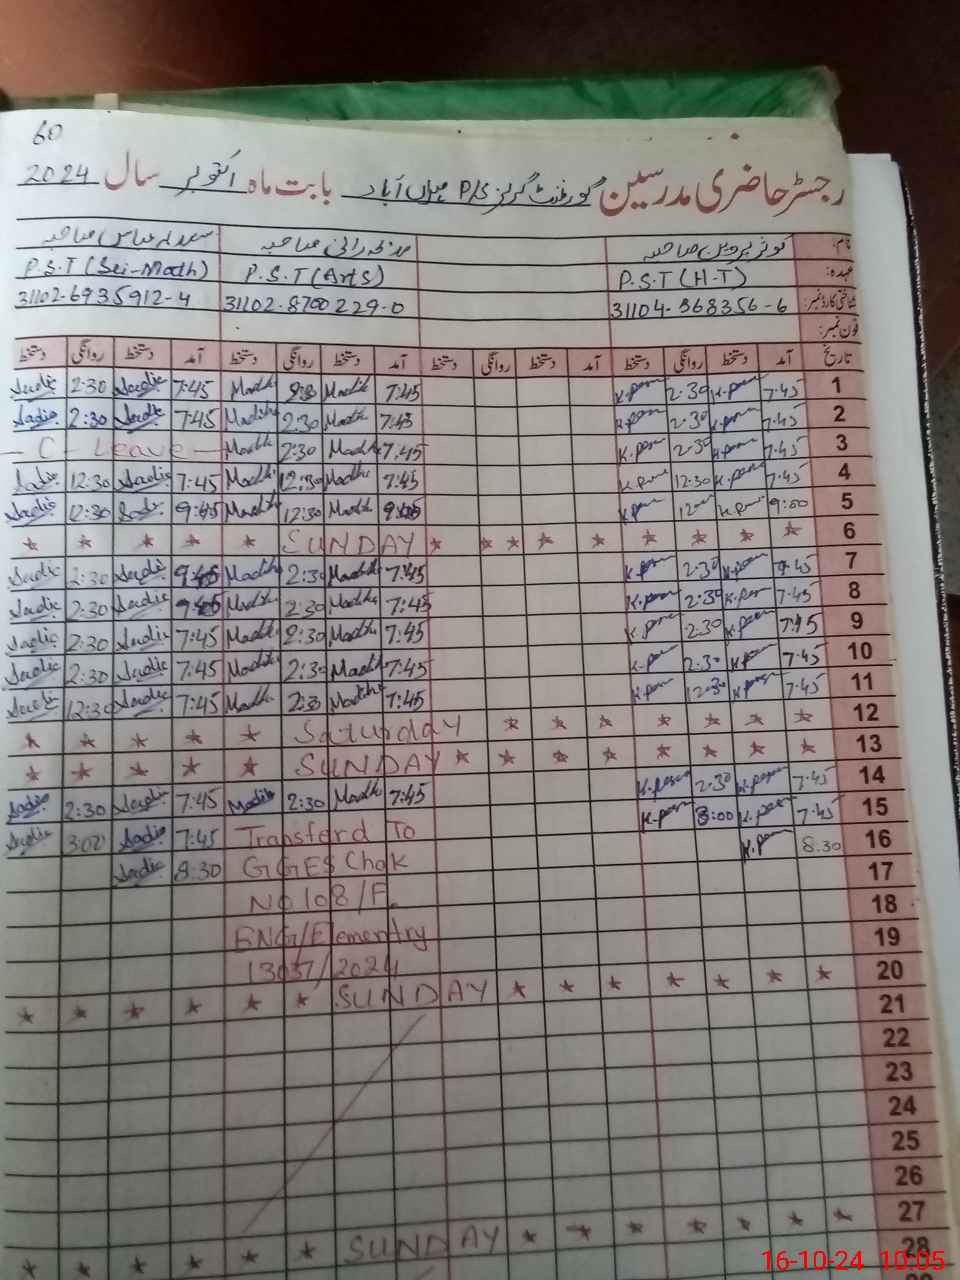 60
رجسٹر حاضری مدرسین گورنمنٹ گرلز P/S میراں آباد بابت ماہ اکتوبر سال 2024
نام: کوثر پروین صاحبہ صاحبہ صاحبہ
عہدہ: P.S.T (H-T) P.S.T (Arts) P.S.T (Sci-Math)
شناختی کارڈ نمبر: 31104-968356-6 31102-8700229-0 31102-6935912-4
فون نمبر:
تاریخ آمد دستخط روانگی دستخط آمد دستخط روانگی دستخط آمد دستخط روانگی دستخط آمد دستخط روانگی دستخط
1 7:45 K.par 2:30 K.par 7:45 Madih Madih 7:45 Sadia 2:30 Sadia
2 7:45 K.par 2:30 K.par 7:45 Madih 2:30 Madih 7:45 Sadia 2:30 Sadia
3 7:45 K.par 2:30 K.par 7:45 Madih 2:30 Madih - C - Leave -
4 7:45 K.par 12:30 K.par 7:45 Madih 12:30 Madih 7:45 Sadia 12:30 Sadia
5 9:00 K.par K.par Madih 12:30 Madih 9:45 Sadia 12:30 Sadia
6 * * * * * * * * * SUNDAY * * * * *
7 K.par 2:30 K.par 7:45 Madih 2:30 Madih Sadia 2:30 Sadia
8 7:45 K.par 2:30 K.par 7:45 Madih 2:30 Madih Sadia 2:30 Sadia
9 7:45 K.par 2:30 K.par 7:45 Madih 2:30 Madih 7:45 Sadia 2:30 Sadia
10 7:45 K.par 2:30 K.par 7:45 Madih 2:30 Madih 7:45 Sadia 2:30 Sadia
11 7:45 K.par 12:30 K.par 7:45 Madih 2:30 Madih 7:45 Sadia 12:30 Sadia
12 * * * * * * * Saturday * * * * *
13 * * * * * * * * SUNDAY * * * * *
14 7:45 K.par 2:30 K.par 7:45 Madih 2:30 Madih 7:45 Sadia 2:30 Sadia
15 7:45 K.par 3:00 K.par Transferd To 7:45 Sadia 3:00 Sadia
16 8.30 K.par GGES Chak 8:30 Sadia
17 NO 108/F.
18 ENG/Elementry
19 /2024
20 * * * * * * * SUNDAY * * * * * *
21
22
23
24
25
26
27 * * * * * * * SUNDAY * * * * * *
28
16-10-24 10:05